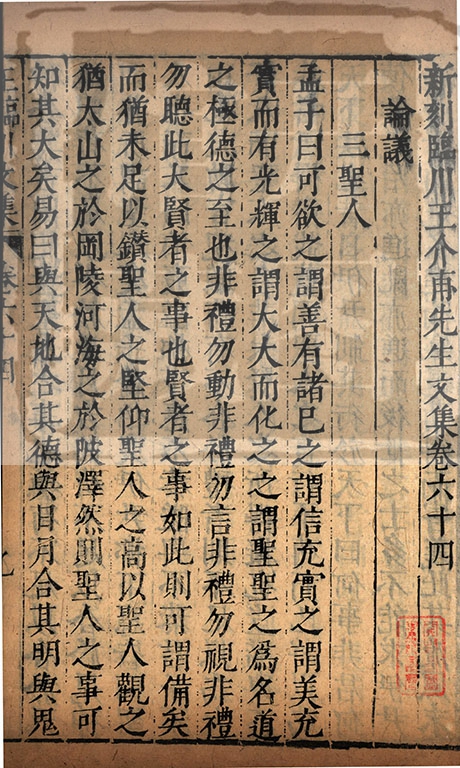 新刻臨川王介甫先生文集卷六十四
論議
三聖人
孟子曰可欲之謂善有諸已之謂信充實之謂美充
實而有光輝之謂大大而化之之謂聖聖之爲名道
之極德之至也非禮勿動非禮勿言非禮勿視非禮
勿聽此大賢者之事也賢者之事如此則可謂備矣
而猶未足以鑚聖人之堅仰聖人之高以聖人觀之
猶太山之於岡陵河海之於陂澤然則聖人之事可
知其大矣易曰與天地合其德與日月合其明與鬼
王臨川文集 卷六十四